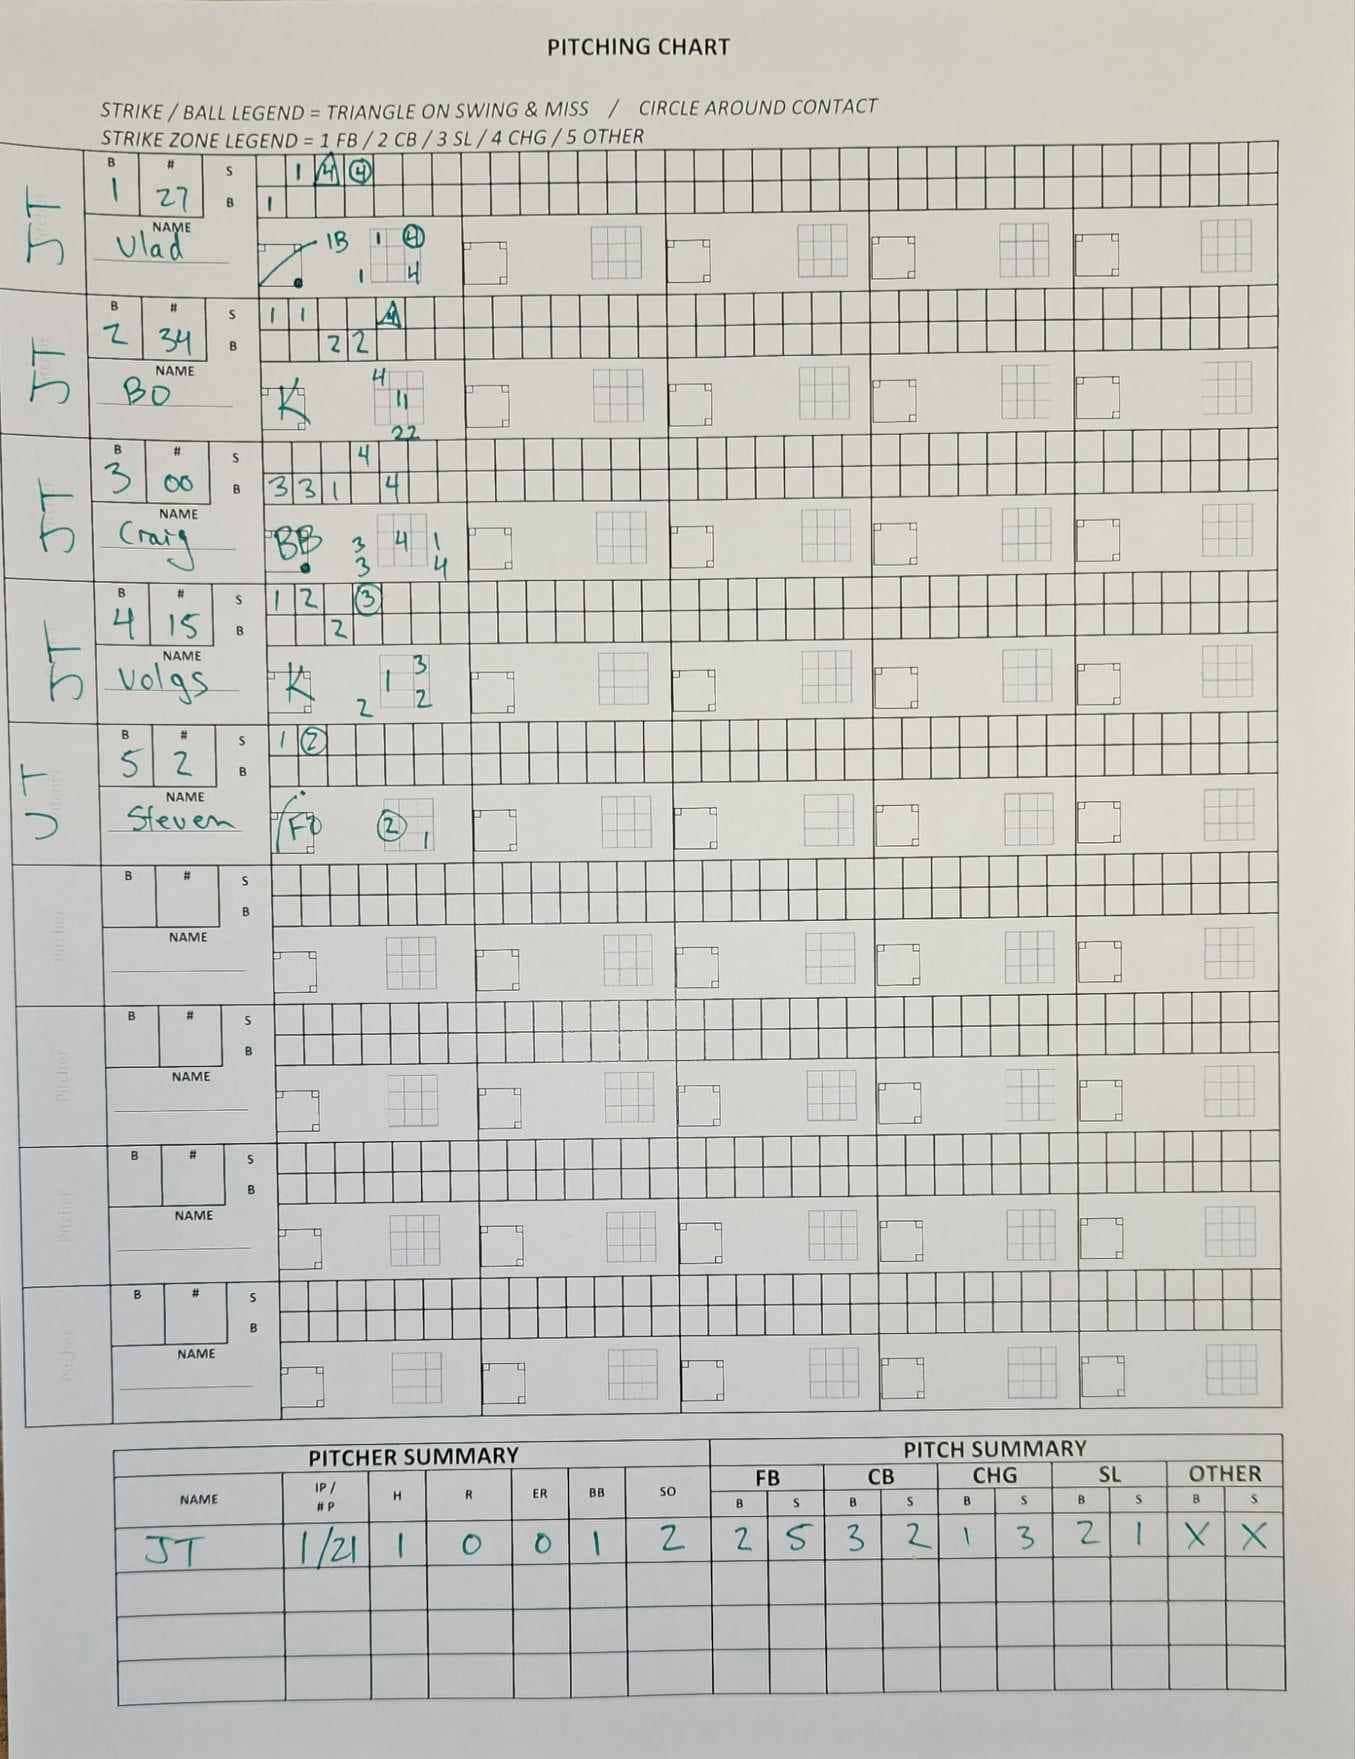 PITCHING CHART
STRIKE / BALL LEGEND = TRIANGLE ON SWING & MISS / CIRCLE AROUND CONTACT
STRIKE ZONE LEGEND = 1 FB / 2 CB / 3 SL / 4 CHG / 5 OTHER
JT
B # S 1 4 4
1 27 B 1
NAME
Vlad 1B 1 4
1 4
JT
B # S 1 1 4
2 34 B 2 2
NAME 4
BO K 11
22
JT
B # S 4
3 00 B 3 3 1 4
NAME
Craig BB 3 4 1
3 4
JT
B # S 1 2 3
4 15 B 2
NAME 3
Volgs K 1 2
2
JT
B # S 1 2
5 2 B
NAME
Steven F8 2 1
B # S
B
NAME
Pitcher
B # S
B
NAME
Pitcher
B # S
B
NAME
Pitcher
B # S
B
NAME
Pitcher
PITCHER SUMMARY PITCH SUMMARY
NAME IP / # P H R ER BB SO FB CB CHG SL OTHER
B S B S B S B S B S
JT 1/21 1 0 0 1 2 2 5 3 2 1 3 2 1 X X